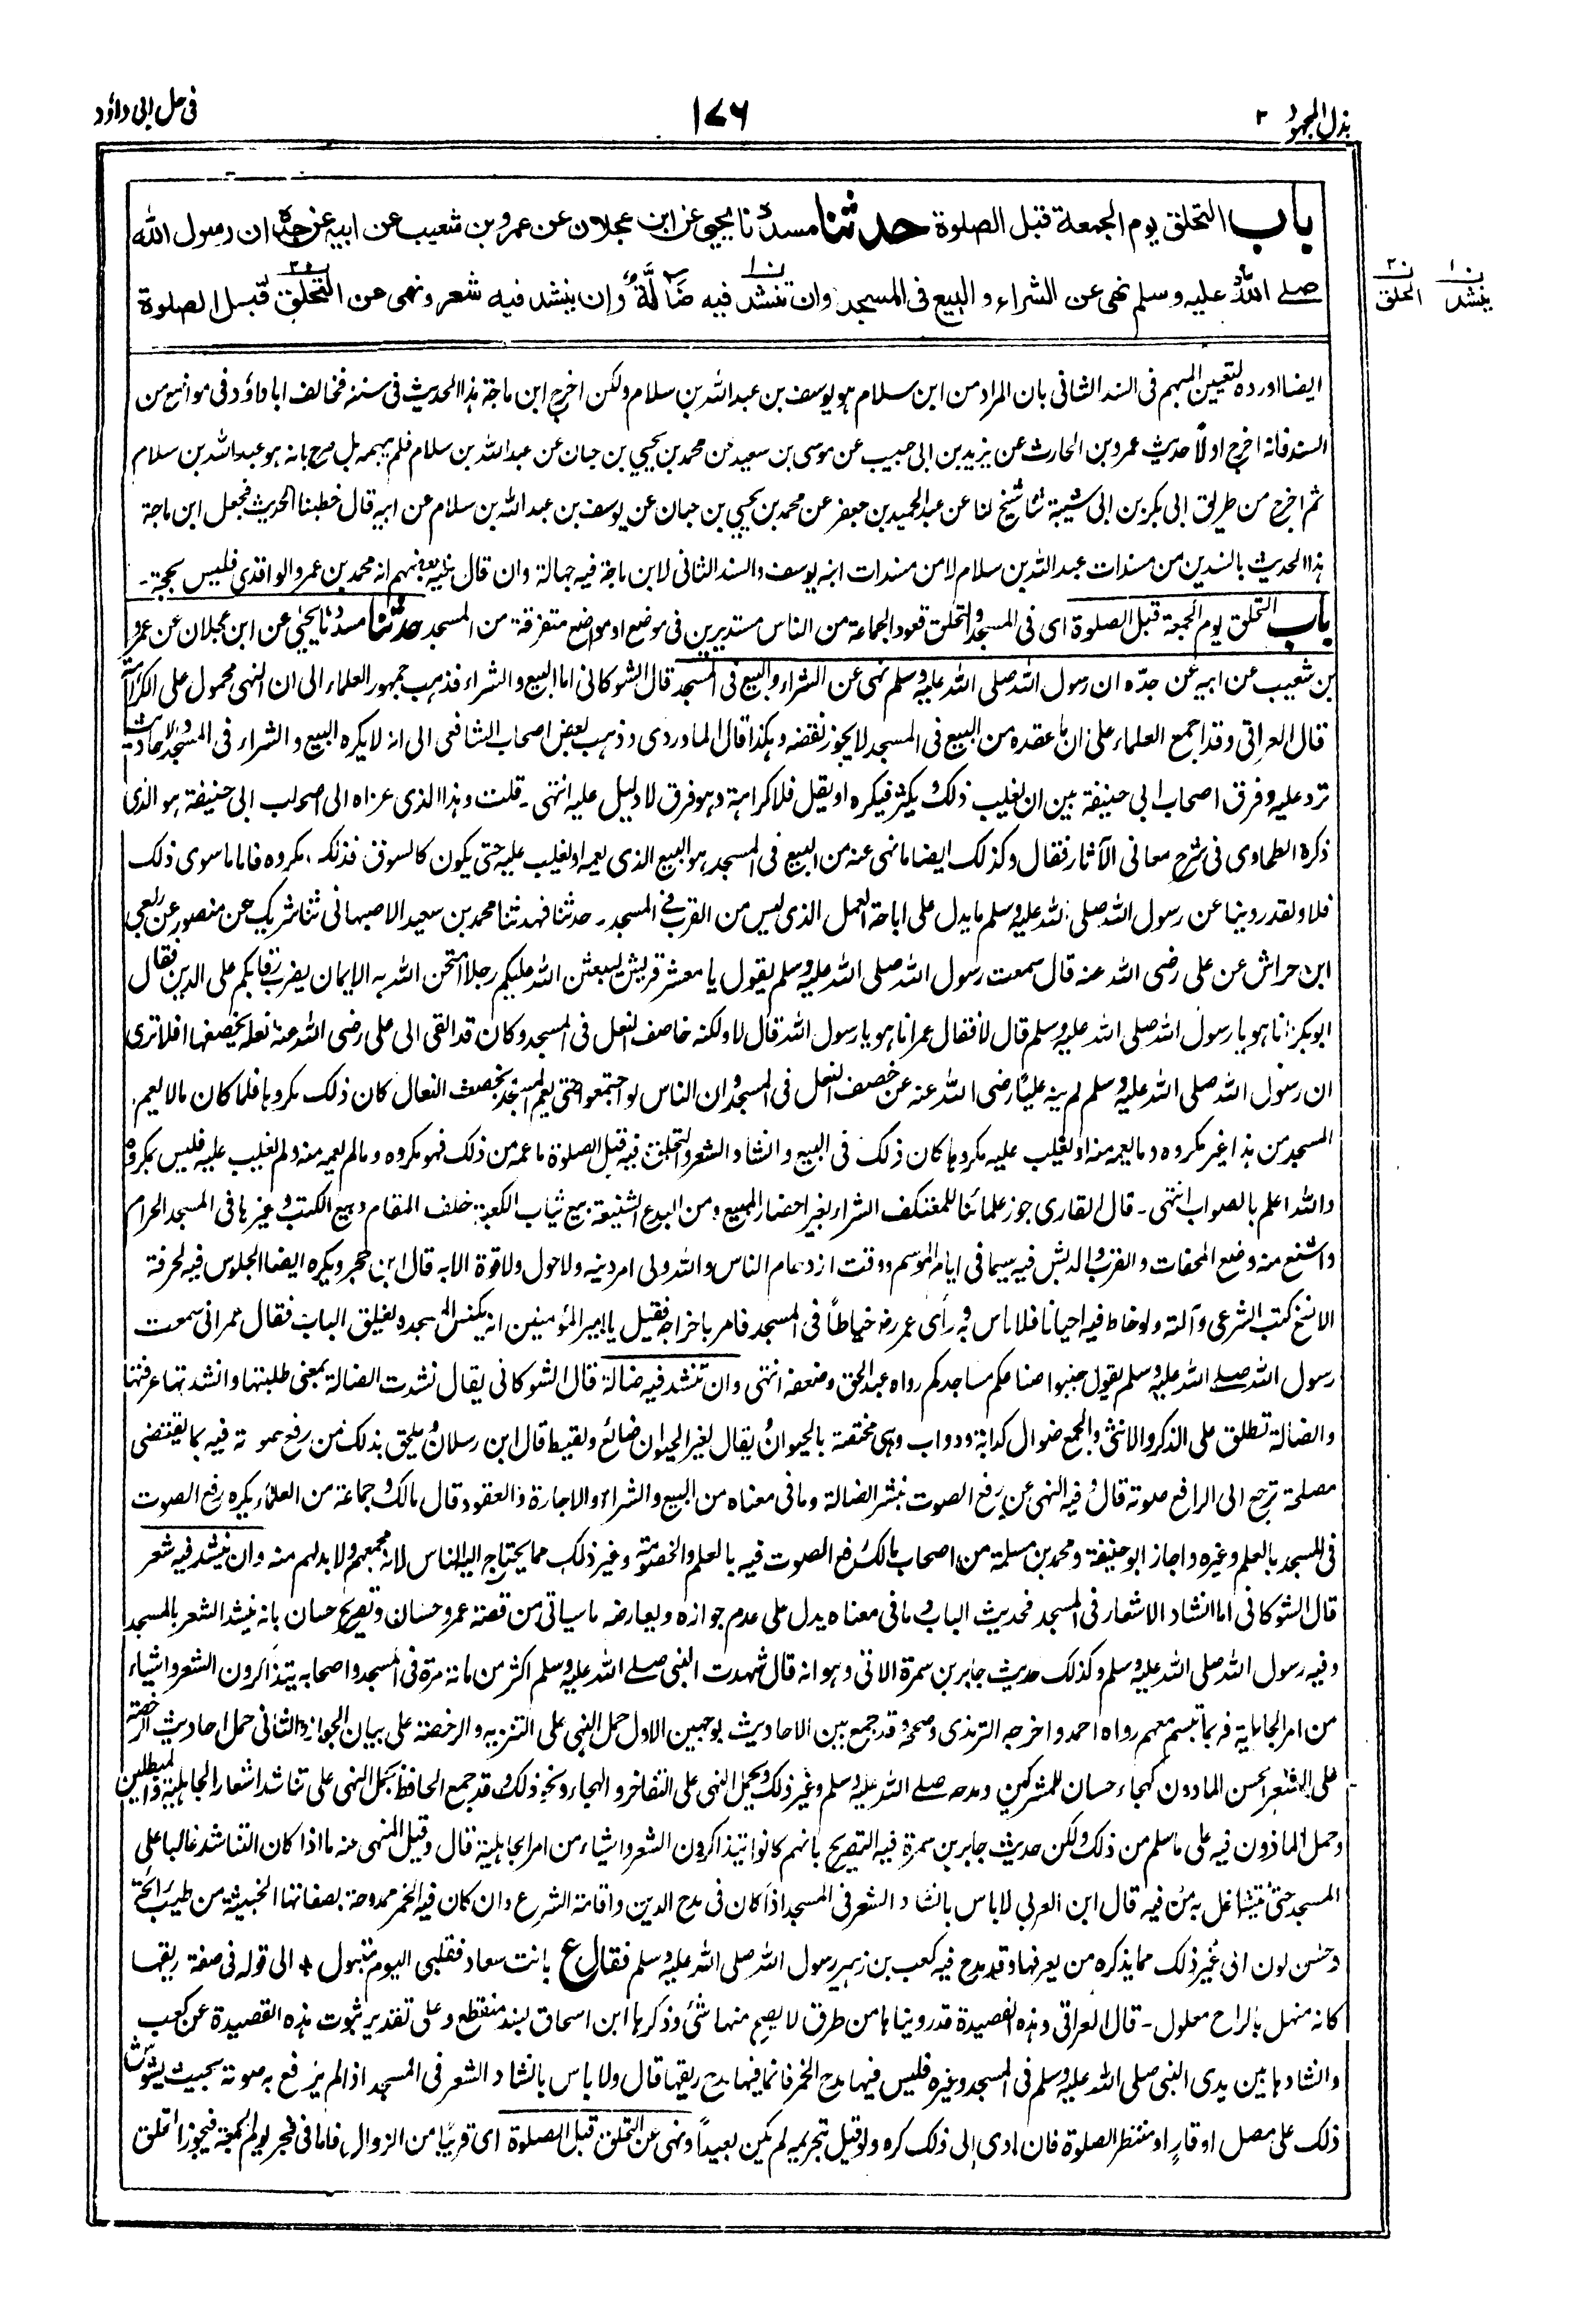 بذل المجهود ٢
١٧٦
فى حل ابى داؤد
باب التحلق يوم الجمعة قبل الصلوة حدثنا مسدد نا يحيى عن ابن عجلان عن عمرو بن شعيب عن ابيه عن جده ان رسول الله
صلے الله عليه وسلم نهى عن الشراء والبيع فى المسجد وان تنشد فيه ضالة وان ينشد فيه شعر ونهى عن التحلق قبل الصلوة
ن١ ينشد ن٢ الحلق
ايضا اورده لتعيين المبهم فى السند الثانى بان المراد من ابن سلام هو يوسف بن عبدالله بن سلام ولكن اخرج ابن ماجة هذا الحديث فى سننه فخالف ابا داؤد فى مواضع من
السند فانه اخرج اولاً حديث عمرو بن الحارث عن يزيد بن ابى حبيب عن موسى بن سعيد عن محمد بن يحيي بن حبان عن عبدالله بن سلام فلم يبهمه بل صرح بانه هو عبدالله بن سلام
ثم اخرج من طريق ابى بكر بن ابى شيبة ثنا شيخ لنا عن عبدالحميد بن جعفر عن محمد بن يحيي بن حبان عن يوسف بن عبدالله بن سلام عن ابيه قال خطبنا الحديث فجعل ابن ماجة
هذا الحديث بالسندين من مسندات عبدالله بن سلام لا من مسندات ابنه يوسف والسند الثانى لابن ماجة فيه جهالة وان قال بعضهم انه محمد بن عمرو الواقدى فليس بحجة۔
باب التحلق يوم الجمعة قبل الصلوة اى فى المسجد والتحلق قعود الجماعة من الناس مستديرين فى موضع او مواضع متفرقة من المسجد حدثنا مسدد نا يحيى عن ابن عجلان عن عمرو
بن شعيب عن ابيه عن جده ان رسول الله صلى الله عليه وسلم نهى عن الشراء والبيع فى المسجد قال الشوكانى اما البيع والشراء فذهب جمهور العلماء الى ان النهى محمول على الكراهة
قال العراقى وقد اجمع العلماء على ان ما عقده من البيع فى المسجد لا يجوز نقضه وهكذا قال الماوردى وذهب بعض اصحاب الشافعى الى انه لا يكره البيع والشراء فى المسجد والاحاديث
ترد عليه وفرق اصحاب ابى حنيفة بين ان يغلب ذلك ويكثر فيكره او يقل فلا كراهة وهو فرق لا دليل عليه انتهى۔ قلت وهذا الذى عزاه الى اصحاب ابى حنيفة هو الذى
ذكره الطحاوى فى شرح معانى الآثار فقال وكذلك ايضا ما نهى عنه من البيع فى المسجد هو البيع الذى يعمه او يغلب عليه حتى يكون كالسوق فذلك مكروه فاما ما سوى ذلك
فلا ولقد روينا عن رسول الله صلى الله عليه وسلم ما يدل على اباحة العمل الذى ليس من القرب فى المسجد۔ حدثنا فهد ثنا محمد بن سعيد الاصبهانى ثنا شريك عن منصور عن ربعى
ابن حراش عن على رضى الله عنه قال سمعت رسول الله صلى الله عليه وسلم يقول يا معشر قريش ليبعثن الله عليكم رجلا امتحن الله به الايمان يضرب رقابكم على الدين فقال
ابوبكر انا هو يا رسول الله صلى الله عليه وسلم قال لا فقال عمر انا هو يا رسول الله قال لا ولكنه خاصف النعل فى المسجد وكان قد القى الى على رضى الله عنه نعله يخصفها افلا ترى
ان رسول الله صلى الله عليه وسلم لم ينه عليًا رضى الله عنه عن خصف النعل فى المسجد وان الناس لو اجتمعوا حتى يعم المسجد بخصف النعال كان ذلك مكروها فلما كان ما لا يعم
المسجد من هذا غير مكروه وما يعمه منه او يغلب عليه مكروها كان ذلك فى البيع وانشاد الشعر والتحلق فيه قبل الصلوة ما عمه من ذلك فهو مكروه وما لم يعمه منه ولم يغلب عليه فليس بمكروه
والله اعلم بالصواب انتهى۔ قال القارى جوز علمائنا للمعتكف الشراء بغير احضار المبيع ومن البدع الشنيعة بيع ثياب الكعبة خلف المقام وبيع الكتب وغيرها فى المسجد الحرام
واشنع منه وضع المحفات والقرب والدبش فيه سيما فى ايام الموسم ووقت ازدحام الناس والله ولى امر دينه ولا حول ولا قوة الا به قال ابن حجر ويكره ايضا الجلوس فيه لحرفة
الا نسخ كتب الشرعى وآلته ولو خاط فيه احيانا فلا باس به رأى عمر رض خياطاً فى المسجد فامر باخراجه فقيل يا امير المؤمنين انه يكنس المسجد ويغلق الباب فقال عمر انى سمعت
رسول الله صلے الله عليه وسلم يقول جنبوا صناعكم مساجدكم رواه عبد الحق وضعفه انتهى وان تنشد فيه ضالة قال الشوكانى يقال نشدت الضالة بمعنى طلبتها وانشدتها عرفتها
والضالة تطلق على الذكر والانثى والجمع ضوال كدابة ودواب وهى مختصة بالحيوان ويقال لغير الحيوان ضائع ولقيط قال ابن رسلان ويلحق بذلك من رفع صوته فيه بما يقتضى
مصلحة ترجع الى الرافع صوته قال وفيه النهى عن رفع الصوت بنشد الضالة وما فى معناه من البيع والشراء والاجارة والعقود قال مالك وجماعة من العلماء يكره رفع الصوت
فى المسجد بالعلم وغيره واجاز ابو حنيفة ومحمد بن مسلمة من اصحاب مالك رفع الصوت فيه بالعلم والخصومة وغير ذلك مما يحتاج اليه الناس لانه مجمعهم ولا بد لهم منه وان ينشد فيه شعر
قال الشوكانى اما انشاد الاشعار فى المسجد فحديث الباب وما فى معناه يدل على عدم جوازه ويعارضه ما سياتى من قصة عمر وحسان وتصريح حسان بانه ينشد الشعر بالمسجد
وفيه رسول الله صلى الله عليه وسلم وكذلك حديث جابر بن سمرة الاتى وهو انه قال شهدت النبى صلے الله عليه وسلم اكثر من مائة مرة فى المسجد واصحابه يتذاكرون الشعر واشياء
من امر الجاهلية فربما تبسم معهم رواه احمد واخرجه الترمذى وصححه وقد جمع بين الاحاديث بوجهين الاول حمل النهى على التنزيه والرخصة على بيان الجواز والثانى حمل احاديث الرخصة
على الشعر الحسن الماذون كهجاء حسان للمشركين ومدحه صلے الله عليه وسلم وغير ذلك ويحمل النهى على التفاخر والهجاء ونحو ذلك وقد جمع الحافظ بحمل النهى على تناشد اشعار الجاهلية والمبطلين
وحمل الماذون فيه على ما سلم من ذلك ولكن حديث جابر بن سمرة فيه التصريح بانهم كانوا يتذاكرون الشعر واشياء من امر الجاهلية قال وقيل المنهى عنه ما اذا كان التناشد غالبا على
المسجد حتى يتشاغل به من فيه قال ابن العربى لا باس بانشاد الشعر فى المسجد اذا كان فى مدح الدين واقامة الشرع وان كان فيه الخمر ممدوحة بصفاتها الخبيثة من طيب رائحة
وحسن لون الى غير ذلك مما يذكره من يعرفها وقد مدح فيه كعب بن زهير رسول الله صلى الله عليه وسلم فقال ع بانت سعاد فقلبى اليوم متبول + الى قوله فى صفة ريقها
كانه منهل بالراح معلول۔ قال العراقى وهذه القصيدة قد رويناها من طرق لا يصح منها شئ وذكرها ابن اسحاق بسند منقطع وعلى تقدير ثبوت هذه القصيدة عن كعب
وانشادها بين يدى النبى صلى الله عليه وسلم فى المسجد وغيره فليس فيها مدح الخمر فانما فيها مدح ريقها قال ولا باس بانشاد الشعر فى المسجد اذا لم يرفع به صوته بحيث يشوش
ذلك على مصل او قارٍ او منتظر الصلوة فان ادى الى ذلك كره ولو قيل بتحريمه لم يكن بعيداً ونهى عن التحلق قبل الصلوة اى قريبًا من الزوال فاما فى فجر يوم الجمعة فيجوز التحلق